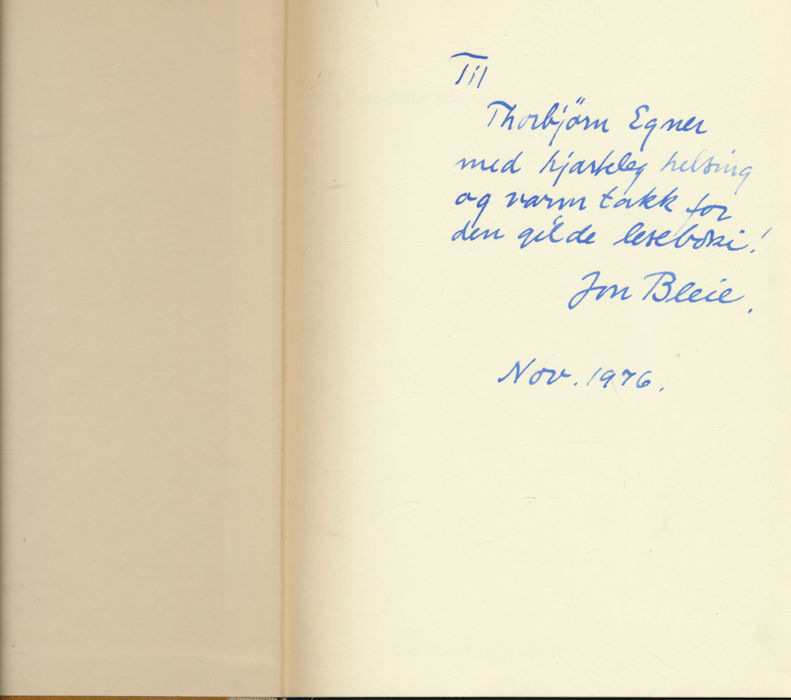 Til
Thorbjörn Egner
med hjarteleg helsing
og varm takk for
den gilde leseboki!
Jon Bleie.
Nov. 1976.